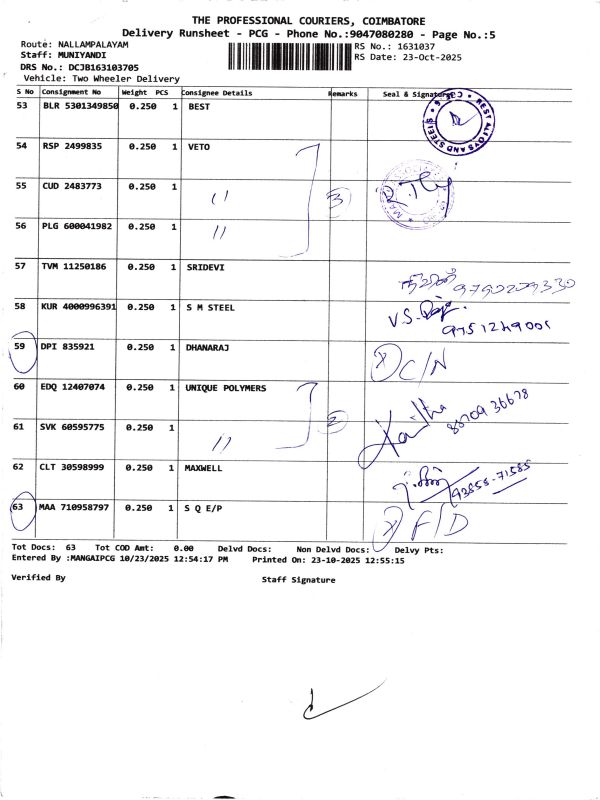 THE PROFESSIONAL COURIERS, COIMBATORE
Delivery Runsheet - PCG - Phone No.:9047080280 - Page No.:5
Route: NALLAMPALAYAM
RS No.: 1631037
Staff: MUNIYANDI
RS Date: 23-Oct-2025
DRS No.: DCJB163103705
Vehicle: Two Wheeler Delivery
S No Consignment No Weight PCS Consignee Details Remarks Seal & Signature
53 BLR 5301349850 0.250 1 BEST
BEST ALLOYS AND STEELS
54 RSP 2499835 0.250 1 VETO
55 CUD 2483773 0.250 1 " 3
56 PLG 600041982 0.250 1 "
57 TVM 11250186 0.250 1 SRIDEVI
9790209330
58 KUR 4000996391 0.250 1 S M STEEL
V.S.
9751249001
59 DPI 835921 0.250 1 DHANARAJ
C/N
60 EDQ 12407074 0.250 1 UNIQUE POLYMERS 2
88709 36678
61 SVK 60595775 0.250 1 "
62 CLT 30598999 0.250 1 MAXWELL
93858-71585
63 MAA 710958797 0.250 1 S Q E/P
F/D
Tot Docs: 63 Tot COD Amt: 0.00 Delvd Docs: Non Delvd Docs: Delvy Pts:
Entered By :MANGAIPCG 10/23/2025 12:54:17 PM Printed On: 23-10-2025 12:55:15
Verified By Staff Signature